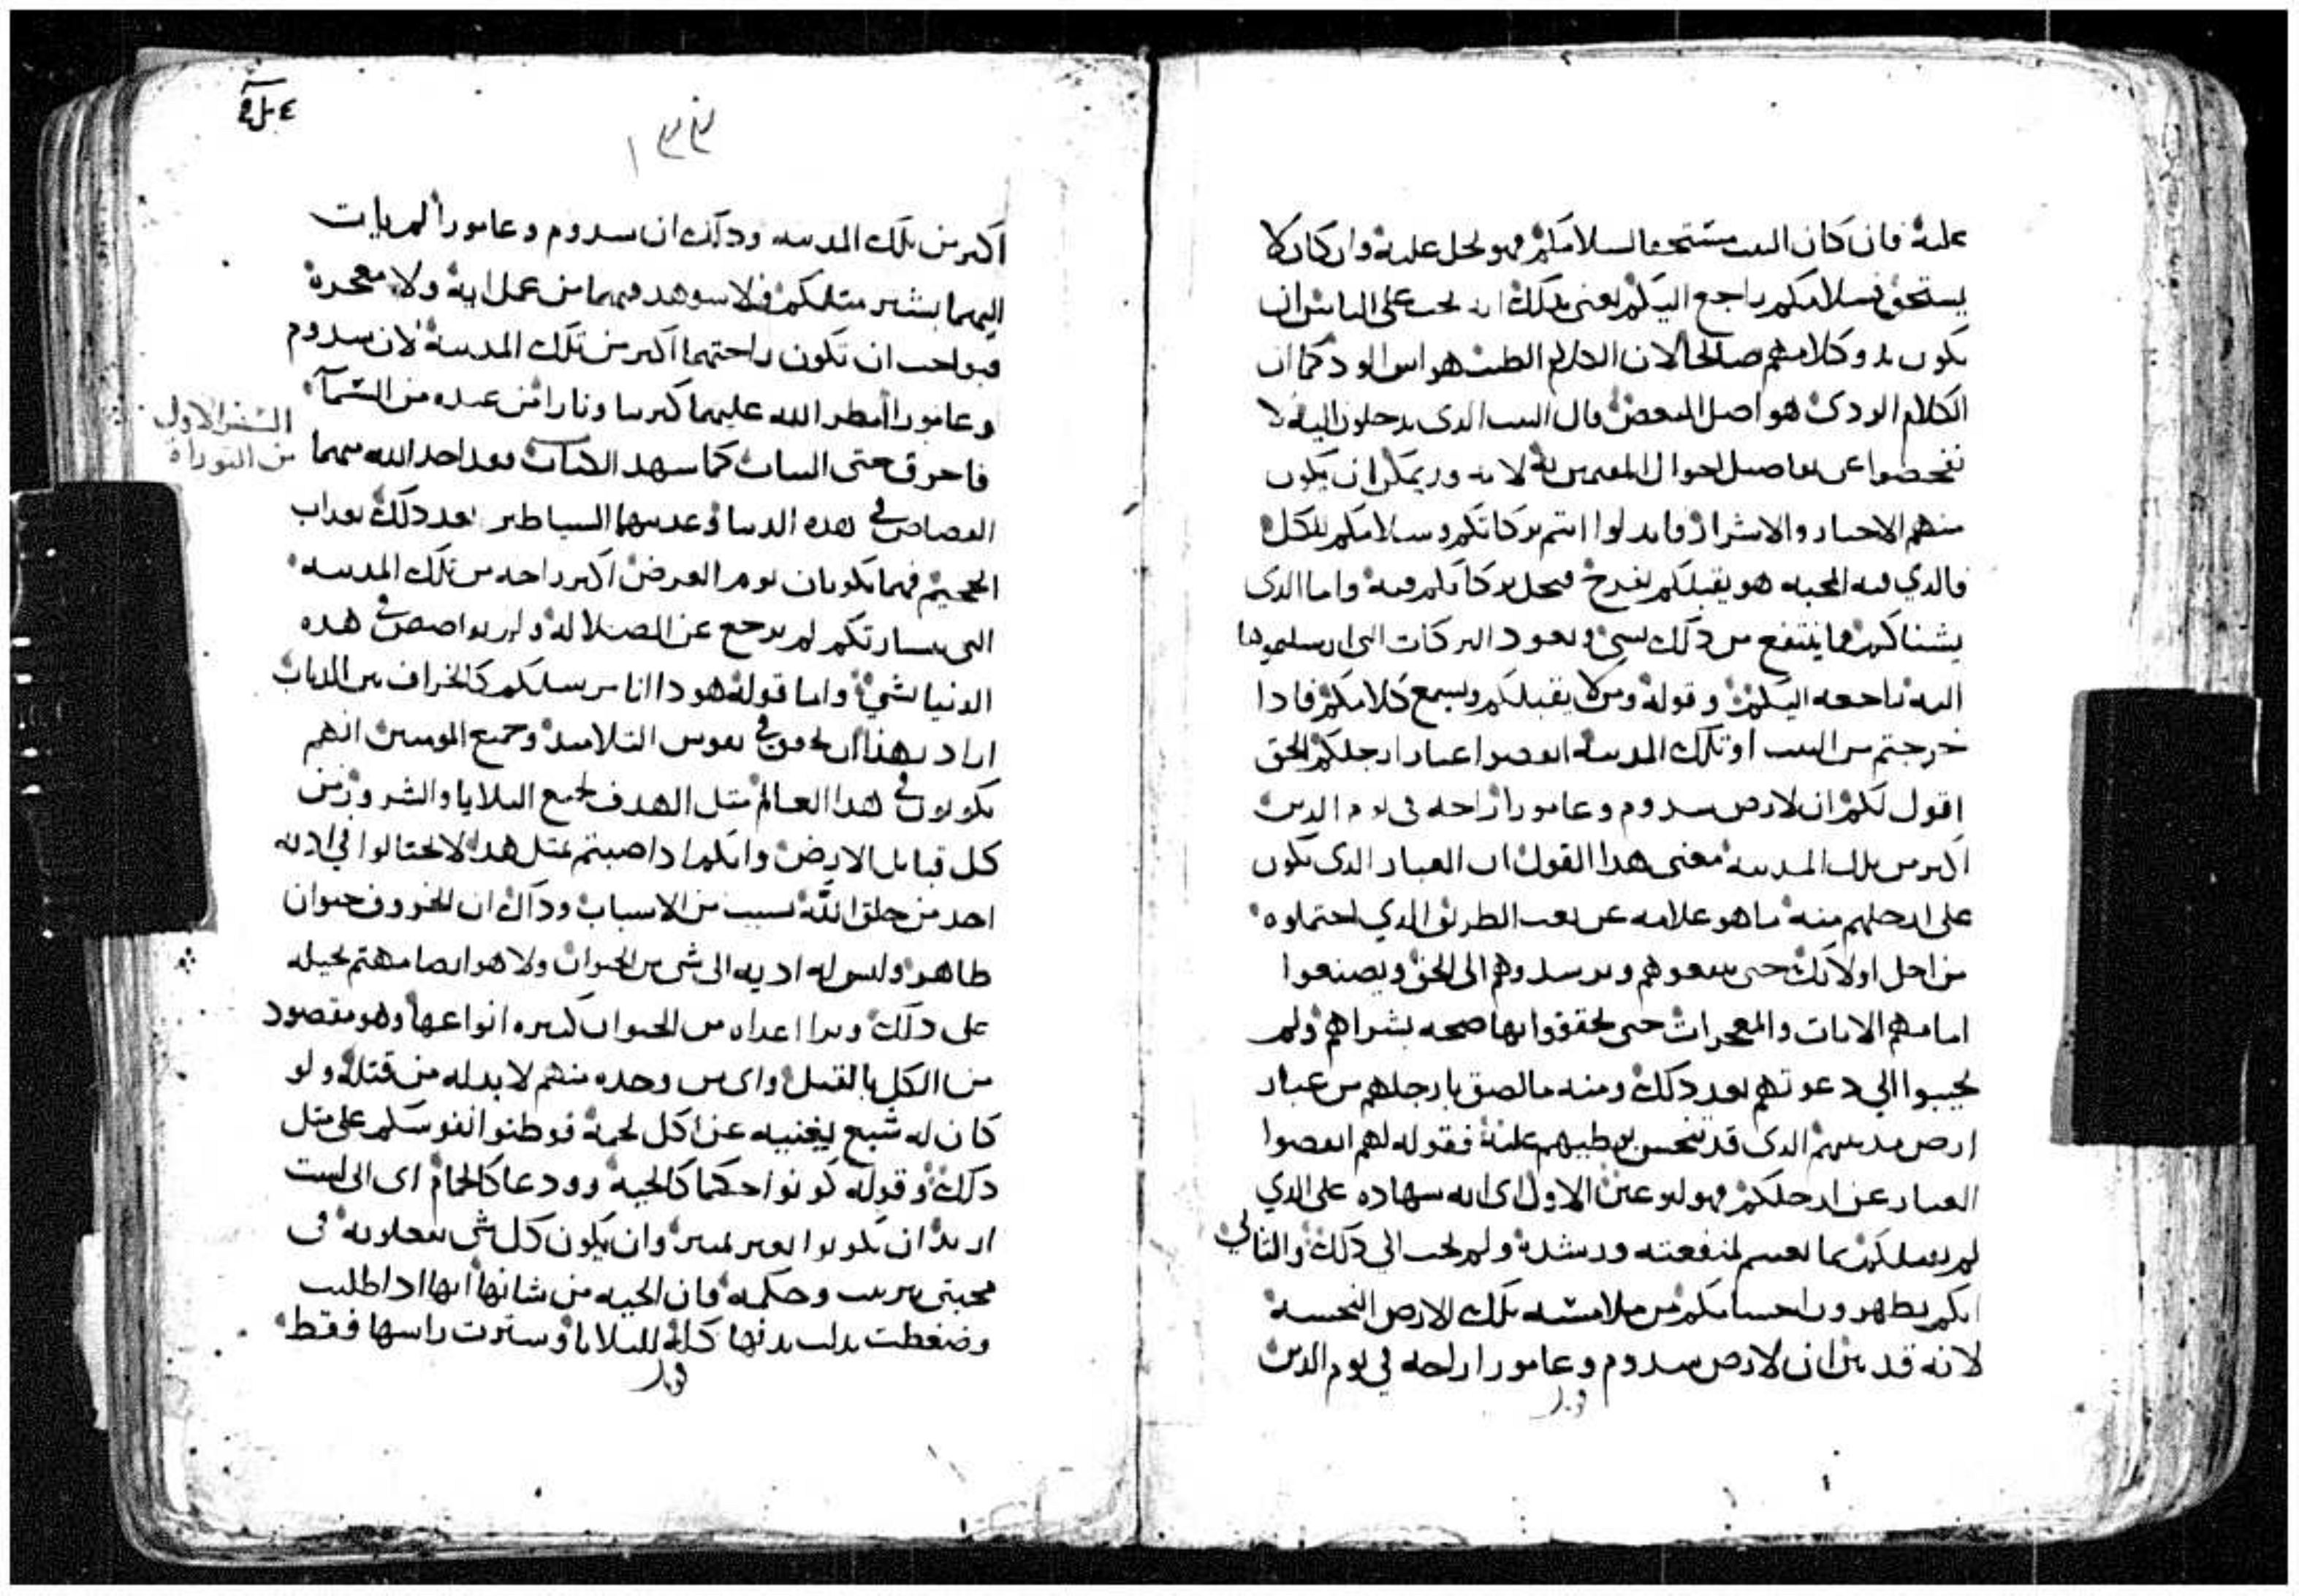 عليه فان كان البيت مستحقا لسلامكم فهو يحل عليه وان كان لا
يستحق فسلامكم راجع اليكم يعني بذلك انه يجب على الناس ان
يكون بدو كلامهم صالحا لان الكلام الطيب هو اس الود كما ان
الكلام الردى هو اصل البغض قال البيت الدى تدخلون اليه لا
تفحصوا عن تفاصيل احوال المقيمين به لانه قد يمكن ان يكون
منهم الاخيار والاشرار فابدلوا انتم بركاتكم وسلامكم للكل
فالدي فيه المحبه هو يقبلكم بفرح فتحل بركاتكم فيه واما الدى
يشناكم فما ينتفع من دلك بشي وتعود البركات التى ارسلتموها
اليه راجعه اليكم وقوله ومن لا يقبلكم ويسمع كلامكم فادا
خرجتم من البيت او تلك المدينه انفضوا غبار ارجلكم الحق
اقول لكم ان لارض سدوم وعامورا راحه فى يوم الدين
اكبر من تلك المدينه معنى هدا القول ان الغبار الدى يكون
على ارجلهم منه ما هو علامه عن تعب الطريق الدي احتملوه
من اجل اولائك حتى يتبعوهم ويرسدوهم الى الحق ويصنعوا
امامهم الايات والمعجزات حتى يحققوا بها صحه بشراهم ولم
يجيبوا الي دعوتهم بعد دلك ومنه ما لصق بارجلهم من غبار
ارض مدينتهم الدى قد تنجس بوطيهم عليه فقوله لهم انفضوا
الغبار عن ارجلكم فهو لنوعين الاول اى انه سهاده على الدي
لم يقبلكم بما تعبتم لمنفعته ورشده ولم يجب الي دلك والثاني
انكم تطهرون اجسامكم من ملامسه تلك الارض النجسه
لانه قد بين ان لارض سدوم وعامورا راحه في يوم الدين
١٣٣
اكبر من تلك المدينه ودلك ان سدوم وعامورا لم يات
اليهما بشير مثلكم فلا سوهد فيهما من عمل ايه ولا معجزه
فبواجب ان تكون راحتهما اكبر من تلك المدينه لان سدوم
وعامورا امطر الله عليهما كبريتا ونارا من عنده من السمآ
فاحرق حتى النبات كما سهد الكتاب فقد اخد الله منهما
السفر الاول
من التوراة
القصاص في هده الدنيا وعدبهما السياطين بعد دلك بعداب
الجحيم فهما يكونان يوم العرض اكبر راحه من تلك المدينه
التى ببشارتكم لم ترجع عن الضلاله ولم يقاصص في هده
الدنيا بشي واما قوله هودا انا مرسلكم كالخراف بين الدياب
اراد بهدا ان يحقق في نفوس التلاميد وجميع المومنين انهم
يكونون في هدا العالم متل الهدف لجميع البلايا والشرور من
كل قبايل الارض وانكم ادا اصبتم بمتل هدا لا تحتالوا في اديه
احد من خلق الله بسبب من الاسباب ودلك ان الخروف حيوان
طاهر وليس له اديه الى شى من الحيوان ولا هو ايضا مهتم بحيله
على دلك ونرا اعداه من الحيوان كثيره انواعها وهو مقصود
من الكل بالقتل واى من وجده منهم لا بد له من قتله ولو
كان له شبع يغنيه عن اكل لحمه فوطنوا نفوسكم على متل
دلك وقوله كونوا حكما كالحيه وودعا كالحمام اى اني لست
اريد ان تكونوا بغير تمييز وان يكون كل شى تفعلونه فى
محبتى بترتيب وحكمه فان الحيه من شانها انها ادا طلبت
وضغطت بدلت بدنها كله للبلايا وسترت راسها فقط